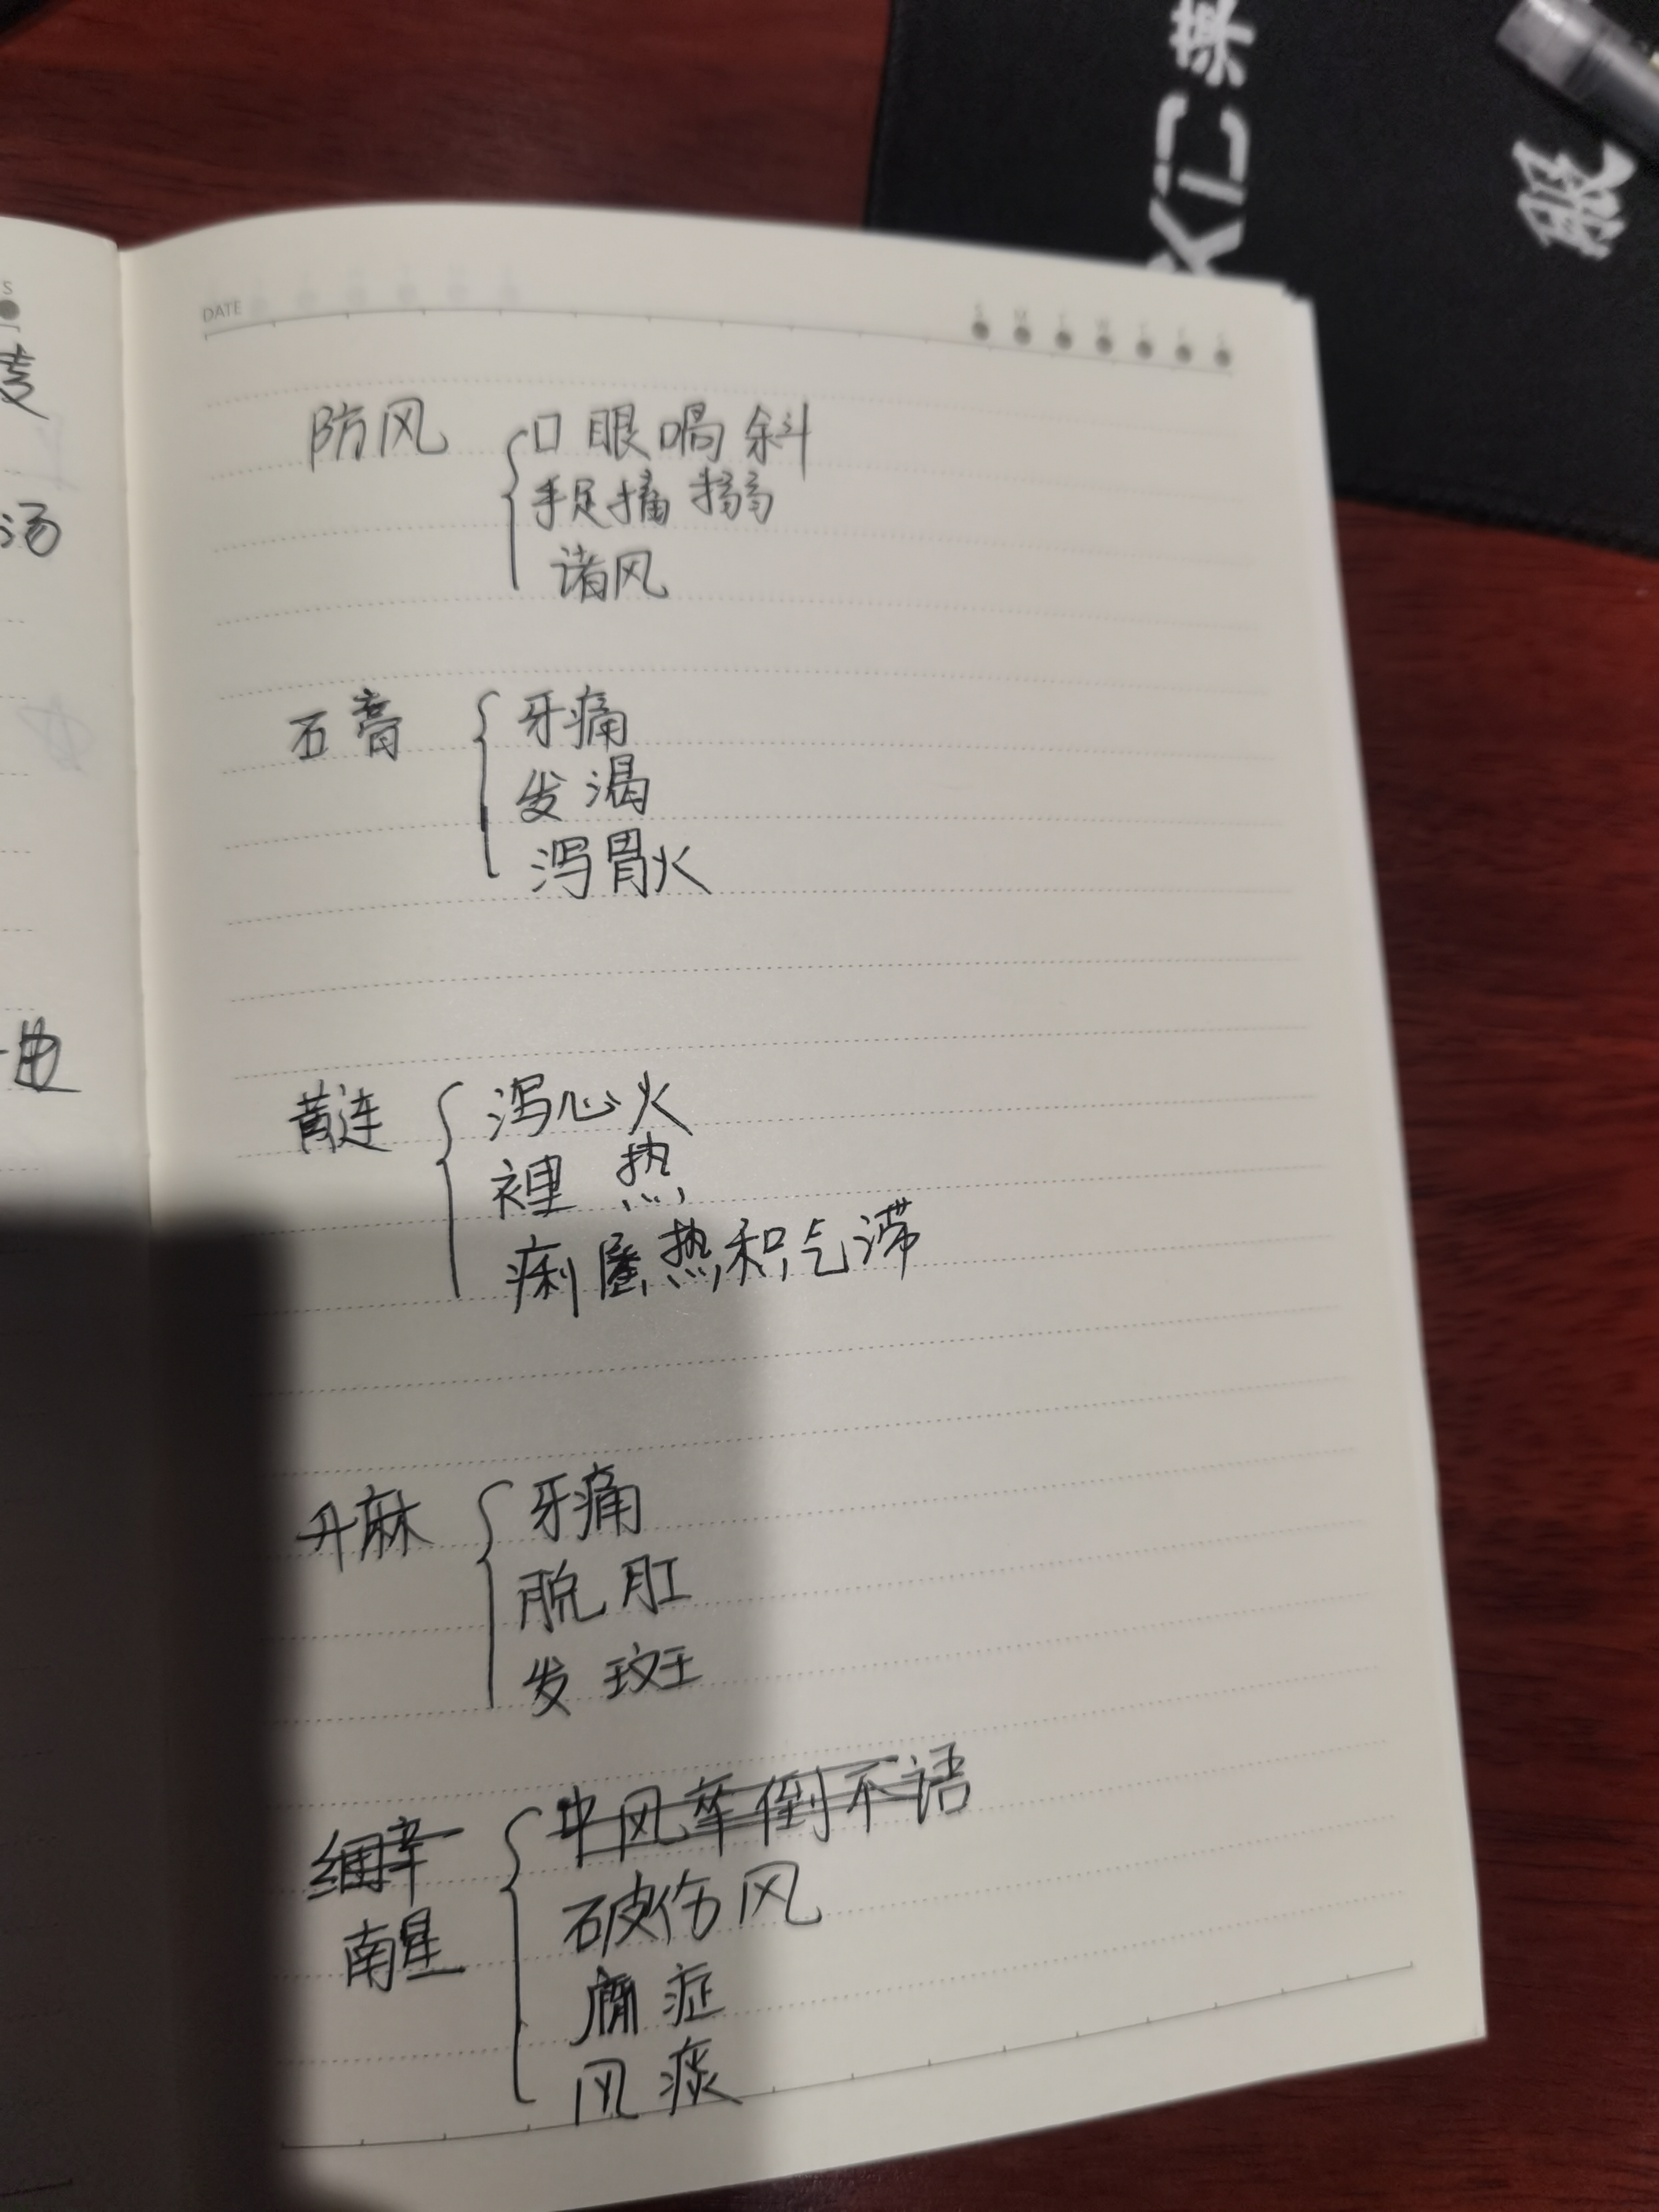 DATE
S M T W T F S
防风
口眼喎斜
手足搐搦
诸风
石膏
牙痛
发渴
泻胃火
黄连
泻心火
裡 热
痢 热积气滞
升麻
牙痛
脱肛
发斑
细辛
中风卒倒不语
南星
破伤风
症
风痰
汤
服